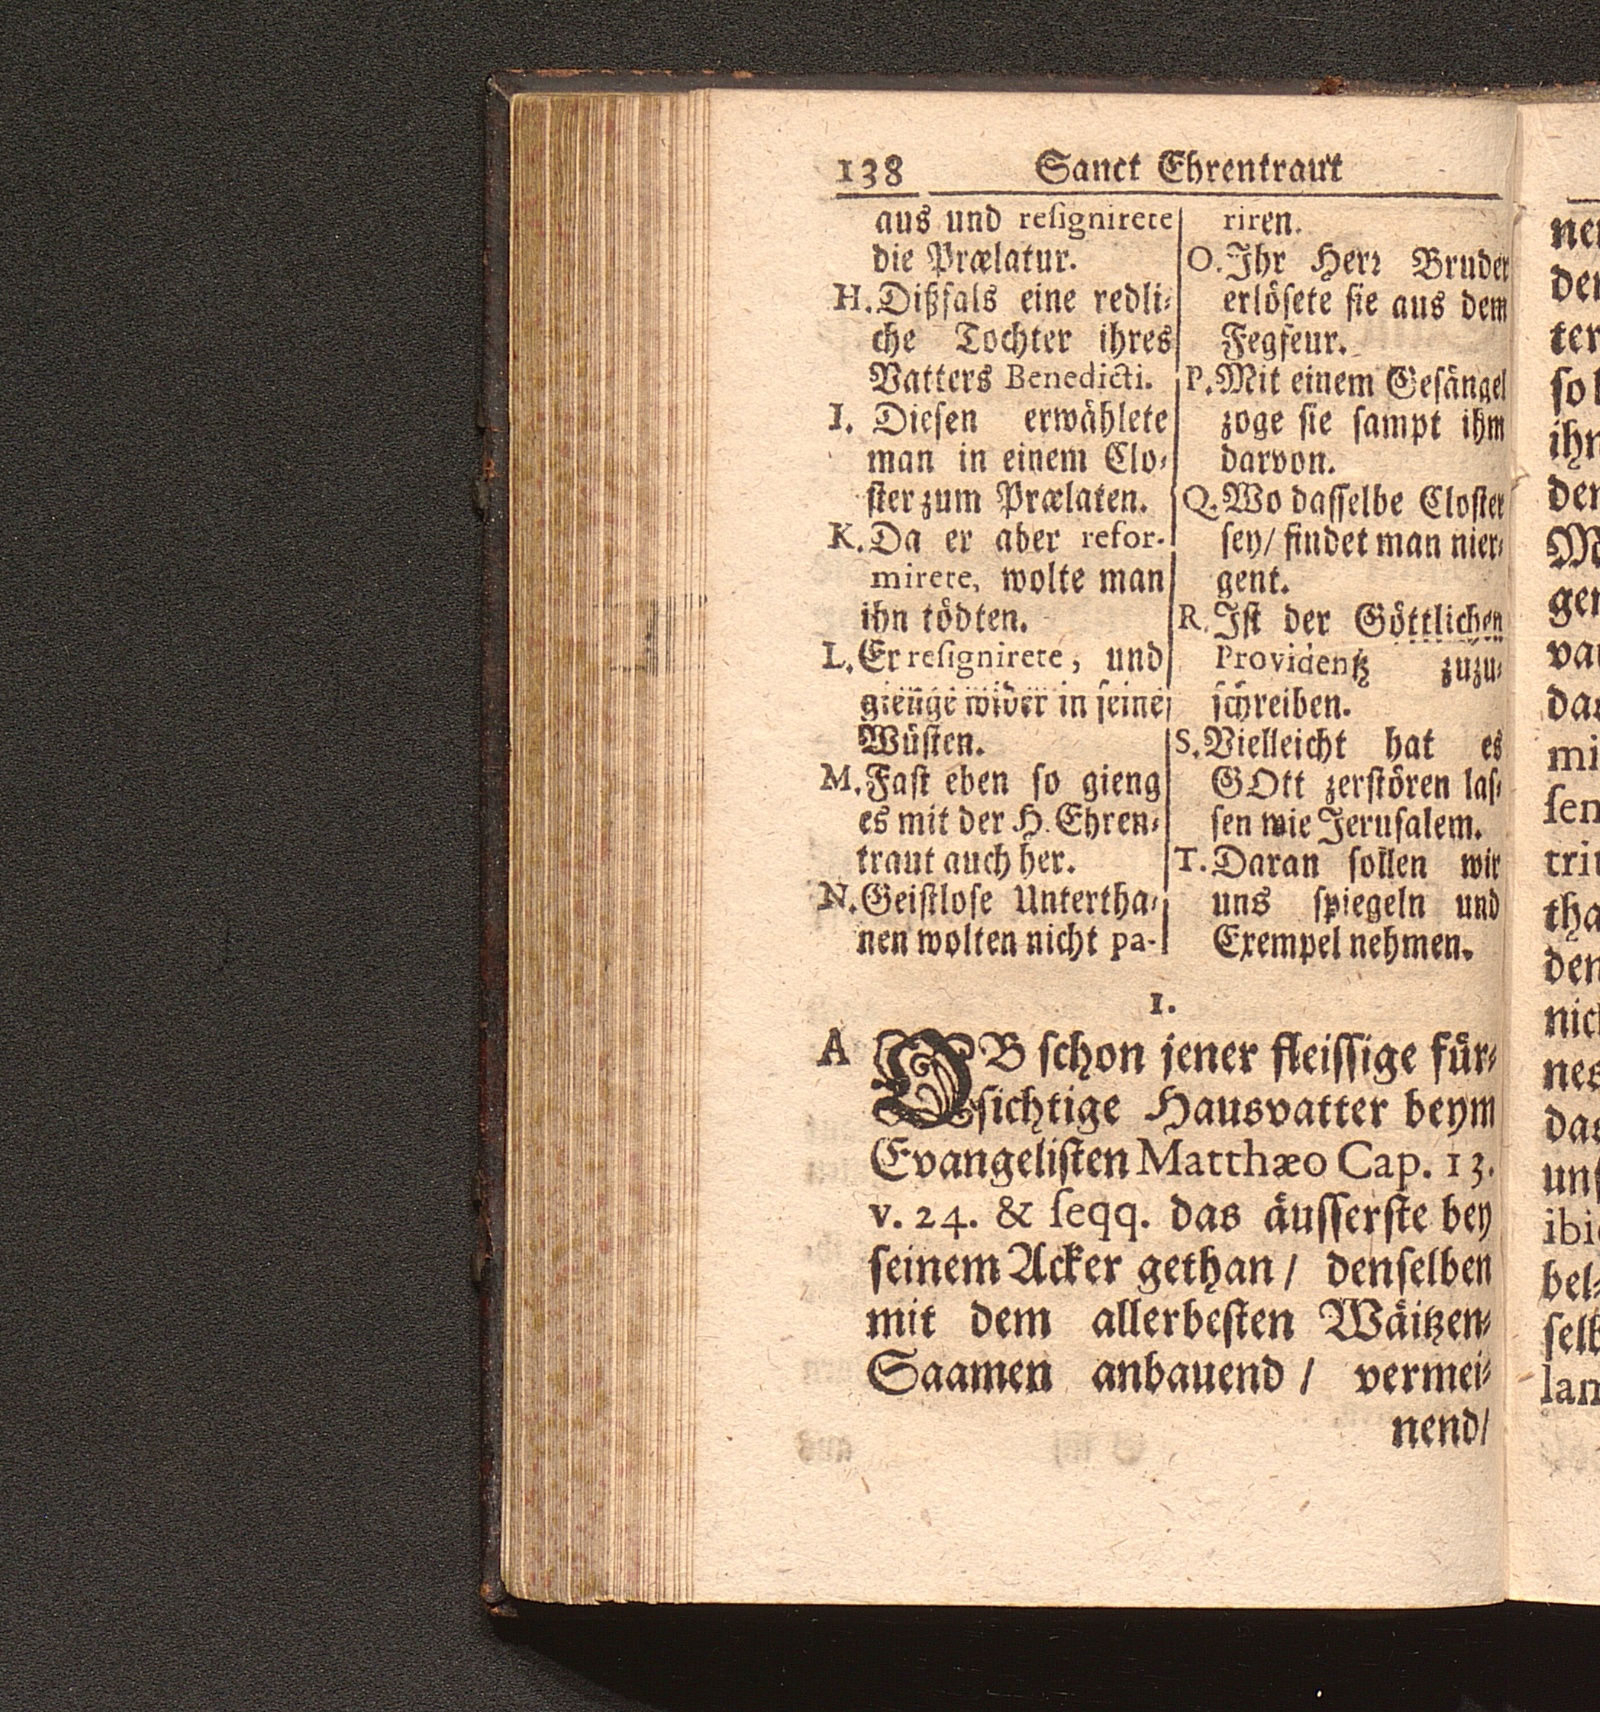 138 Sanct Ehrentraut
aus und resignirete
die Prælatur.
H. Dißfals eine redli-
che Tochter ihres
Vatters Benedicti.
I. Diesen erwählete
man in einem Clo-
ster zum Prælaten.
K. Da er aber refor-
mirete, wolte man
ihn tödten.
L. Er resignirete, und
gienge wider in seine
Wüsten.
M. Fast eben so gieng
es mit der H. Ehren-
traut auch her.
N. Geistlose Untertha-
nen wolten nicht pa-
riren.
O. Ihr Herr Bruder
erlösete sie aus dem
Fegfeur.
P. Mit einem Gesängel
zoge sie sampt ihm
darvon.
Q. Wo dasselbe Closter
sey/ findet man nier-
gent.
R. Ist der Göttlichen
Providentz zuzu-
schreiben.
S. Vielleicht hat es
GOtt zerstören las-
sen wie Jerusalem.
T. Daran sollen wir
uns spiegeln und
Exempel nehmen.
1.
A OB schon jener fleissige für-
sichtige Hausvatter beym
Evangelisten Matthæo Cap. 13.
v. 24. & seqq. das äusserste bey
seinem Acker gethan/ denselben
mit dem allerbesten Wäitzen-
Saamen anbauend/ vermei-
nend/